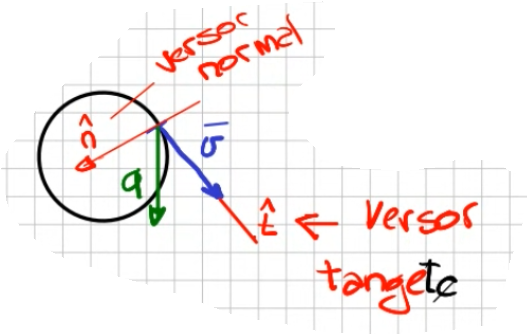 versor
normal
n̂
v̄
a
t̂ ← versor
tangete